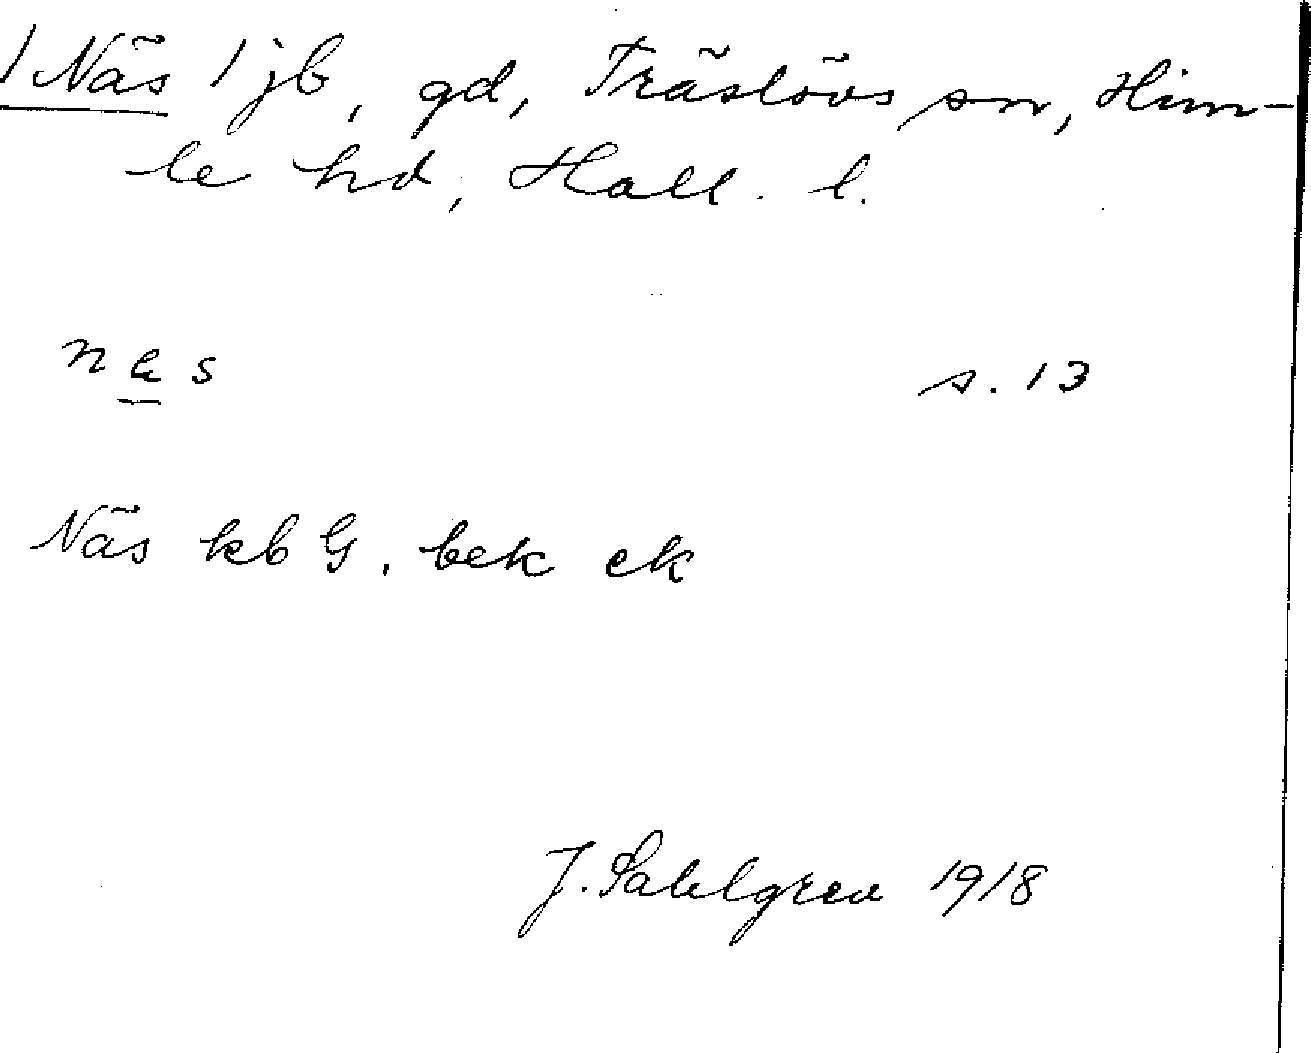 / Näs / jb, gd, Träslövs sn, Him-
le hd, Hall. l.
n e s s. 13
Näs kb G. bek ek
J. Sahlgren 1918